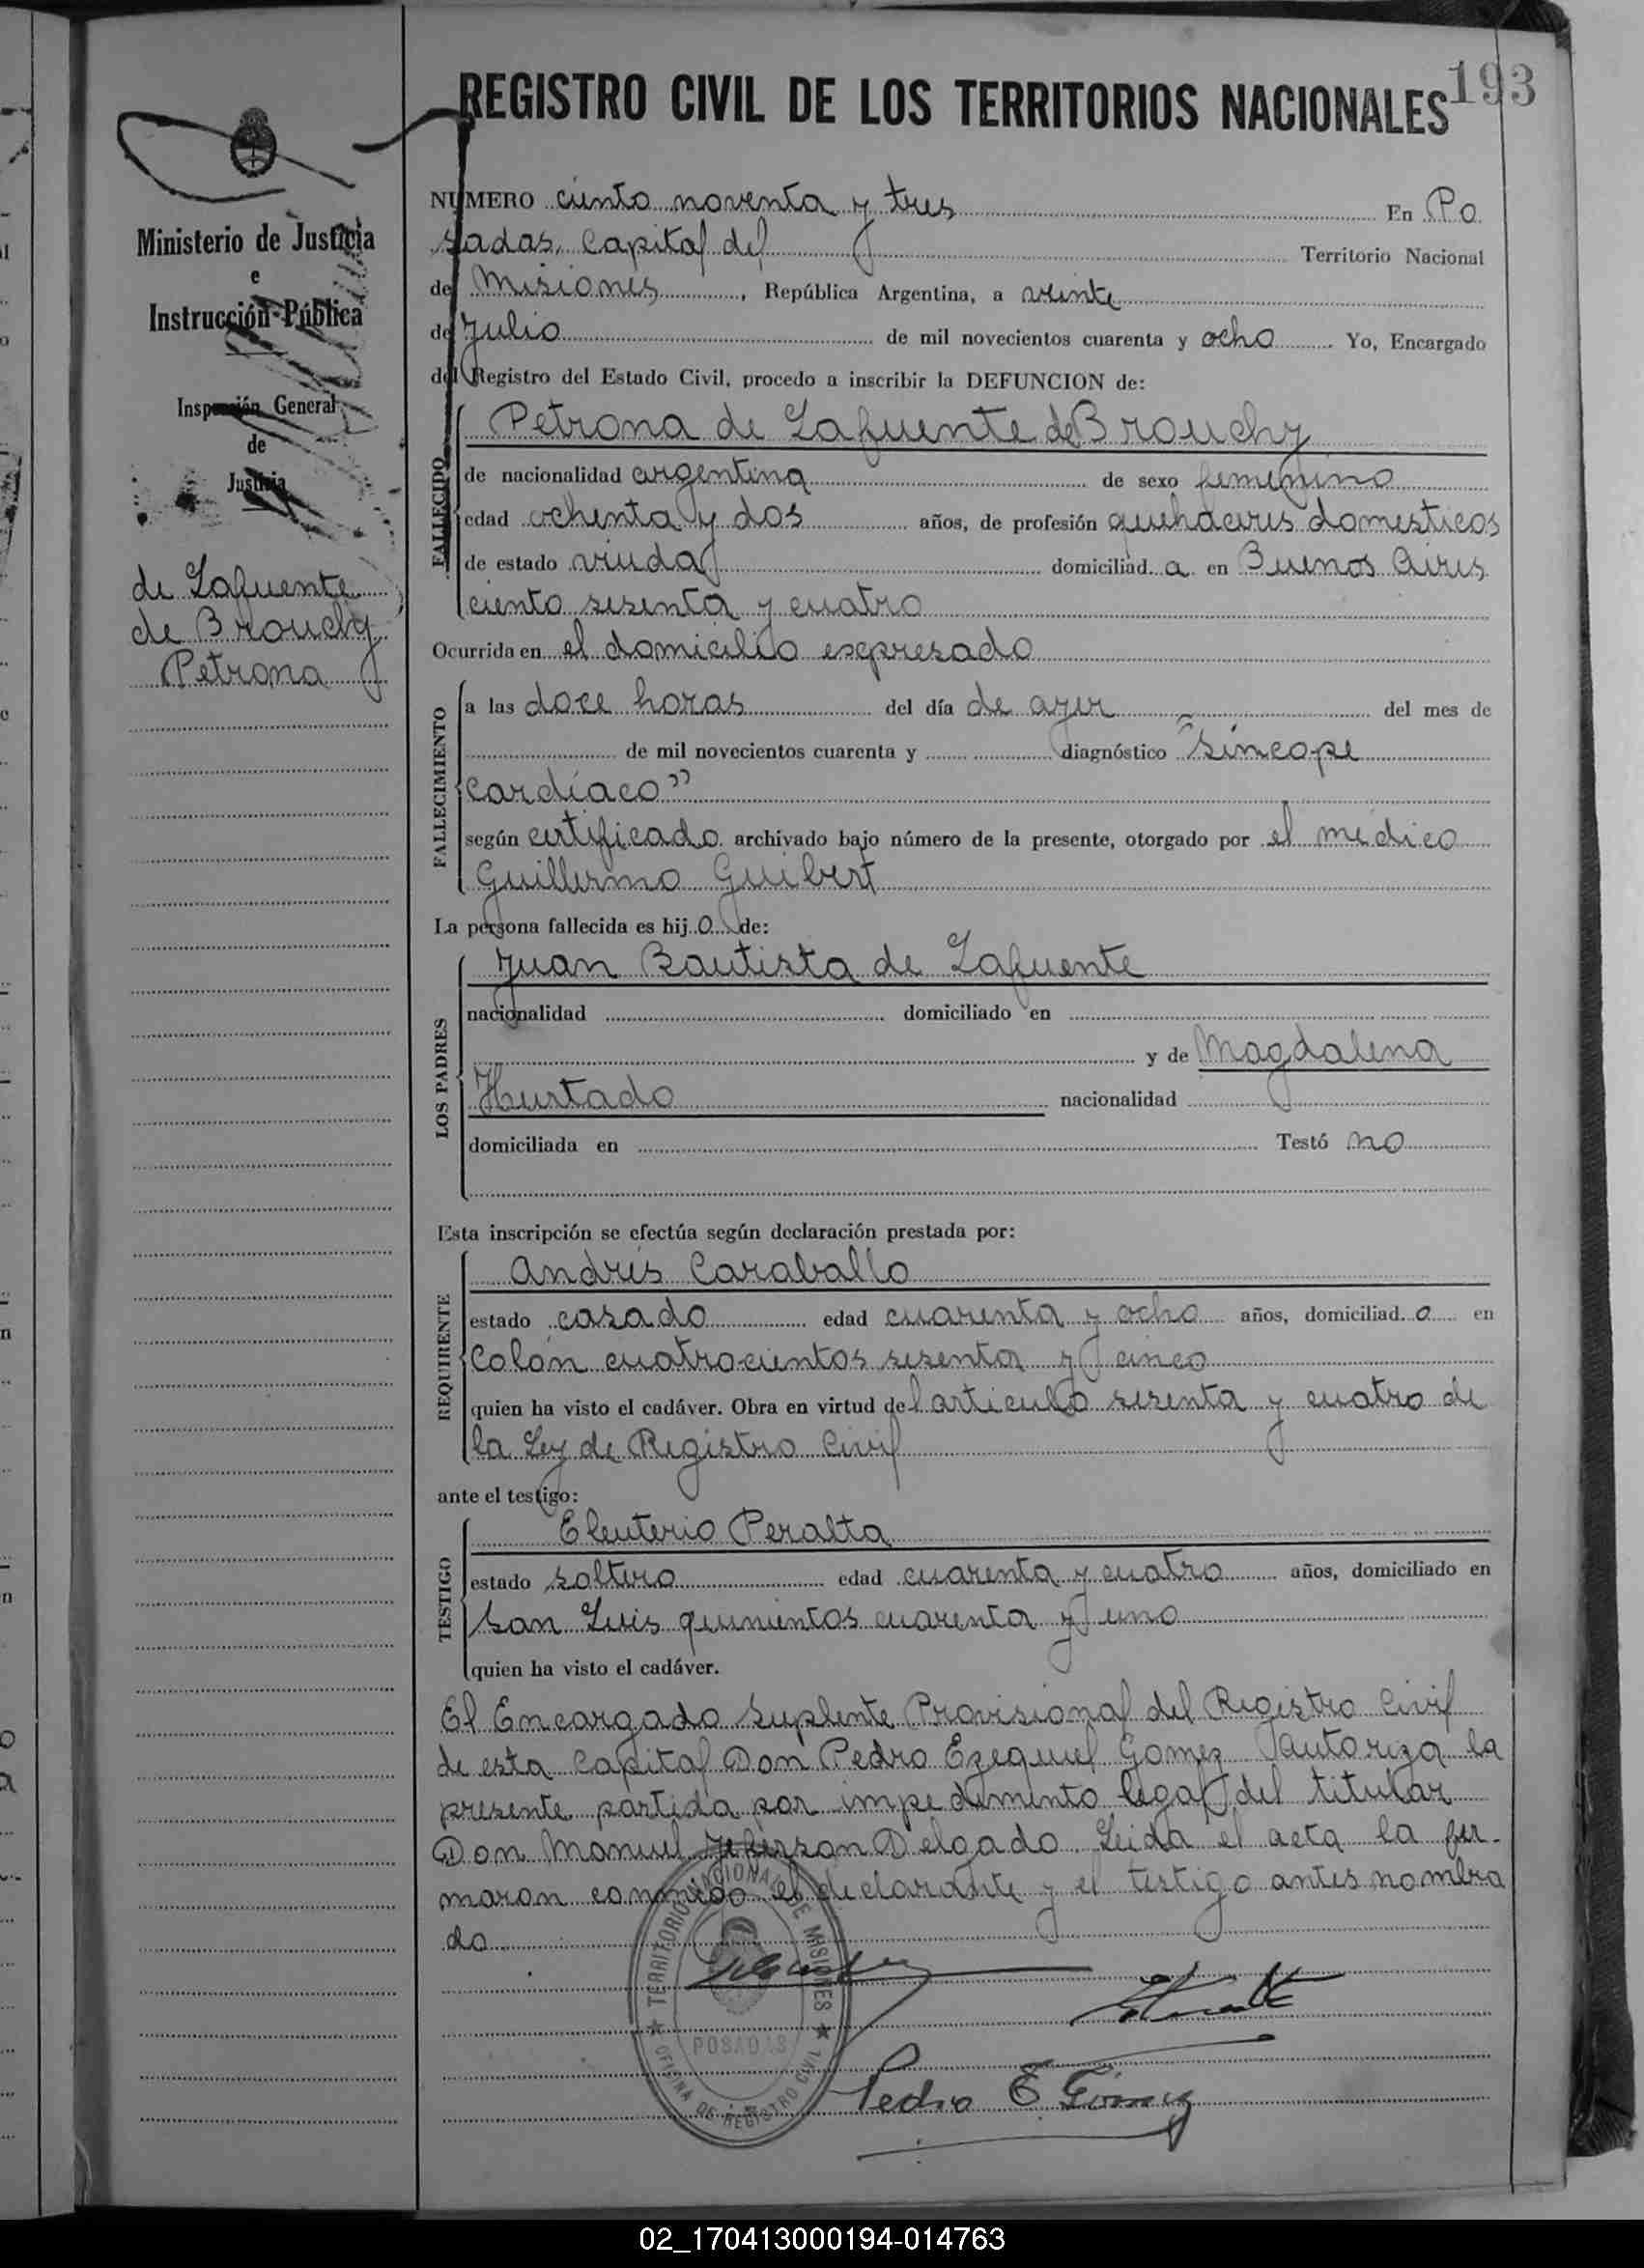 193
REGISTRO CIVIL DE LOS TERRITORIOS NACIONALES
Ministerio de Justicia
e
Instrucción Pública
Inspección General
de
Justicia
de Lafuente
de Brouchy
Petrona
NUMERO ciento noventa y tres En Po
sadas, Capital del Territorio Nacional
de Misiones, República Argentina, a veinte
de Julio de mil novecientos cuarenta y ocho Yo, Encargado
del Registro del Estado Civil, procedo a inscribir la DEFUNCION de:
FALLECIDO
Petrona de Lafuente de Brouchy
de nacionalidad argentina de sexo femenino
edad ochenta y dos años, de profesión quehaceres domesticos
de estado viuda domiciliad a en Buenos Aires
ciento sesenta y cuatro
Ocurrida en el domicilio expresado
FALLECIMIENTO
a las doce horas del día de ayer del mes de
de mil novecientos cuarenta y diagnóstico "síncope
cardíaco"
según certificado archivado bajo número de la presente, otorgado por el médico
Guillermo Guibert
La persona fallecida es hij o de:
LOS PADRES
Juan Bautista de Lafuente
nacionalidad domiciliado en
y de Magdalena
Hurtado nacionalidad
domiciliada en Testó no
Esta inscripción se efectúa según declaración prestada por:
REQUIRENTE
Andrés Caraballo
estado casado edad cuarenta y ocho años, domiciliad o en
Colón cuatrocientos sesenta y cinco
quien ha visto el cadáver. Obra en virtud del articulo sesenta y cuatro de
la Ley de Registro Civil
ante el testigo:
TESTIGO
Eleuterio Peralta
estado soltero edad cuarenta y cuatro años, domiciliado en
San Luis quinientos cuarenta y uno
quien ha visto el cadáver.
El Encargado Suplente Provisional del Registro Civil
de esta Capital Don Pedro Ezequiel Gomez autoriza la
presente partida por impedimento legal del titular
Don Manuel Jeferson Delgado. Leida el acta la fir-
maron conmigo el declarante y el testigo antes nombra
do
TERRITORIO NACIONAL DE MISIONES
POSADAS
OFICINA DE REGISTRO CIVIL
Pedro E Gómez
02_170413000194-014763